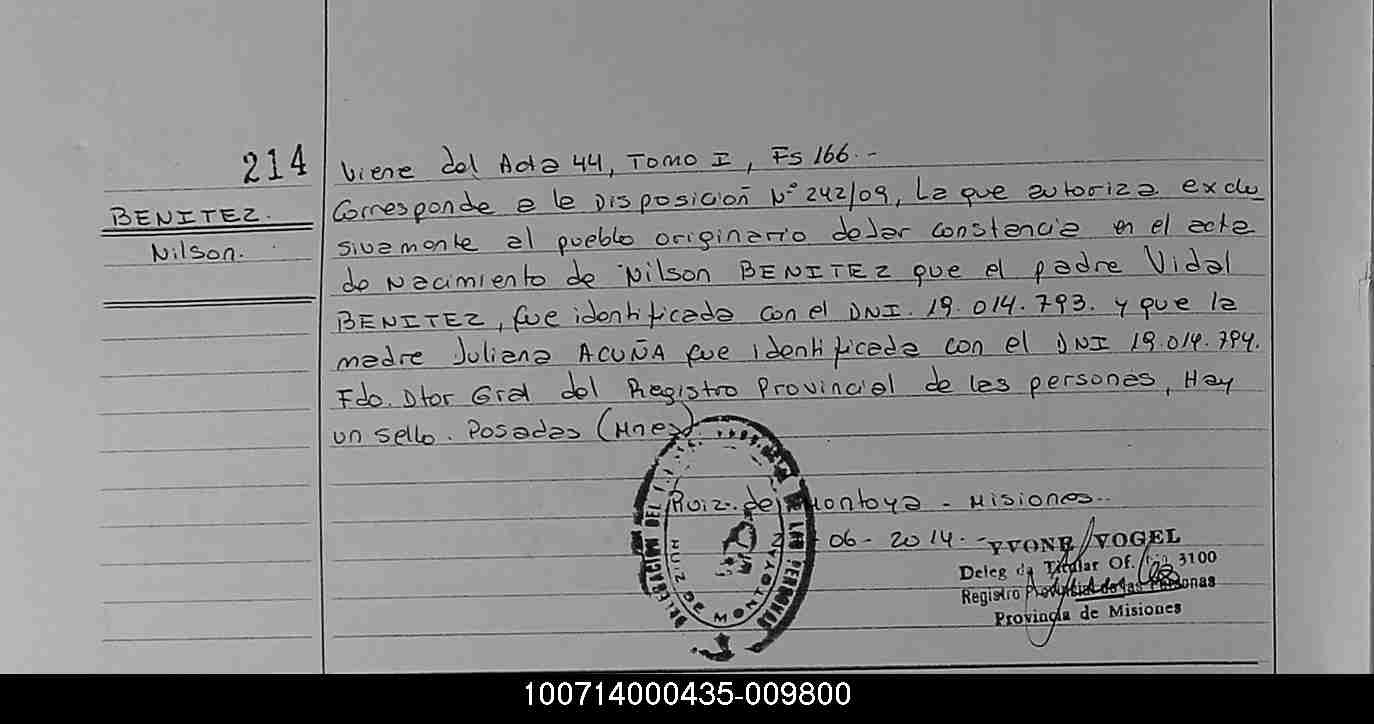 214
BENITEZ.
Nilson.
Viene del Acta 44, Tomo I, Fs 166.-
Corresponde a la Disposición Nº 242/09, La que autoriza exclu
sivamente al pueblo originario dedar constancia en el acta
de Nacimiento de Nilson BENITEZ que el padre Vidal
BENITEZ, fue identificada con el DNI. 19.014.793. y que la
madre Juliana ACUÑA fue identificada con el DNI 19.014.794.
Fdo. Dtor Gral del Registro Provincial de las personas, Hay
un sello. Posadas (Mnes)
Ruiz de Montoya - Misiones..
06-2014.-
DELEGACION DEL DE LAS PERSONAS
RUIZ DE MONTOYA
YVONE VOGEL
Deleg da Titular Of. 3100
Registro Provincial de las Personas
Provincia de Misiones
100714000435-009800